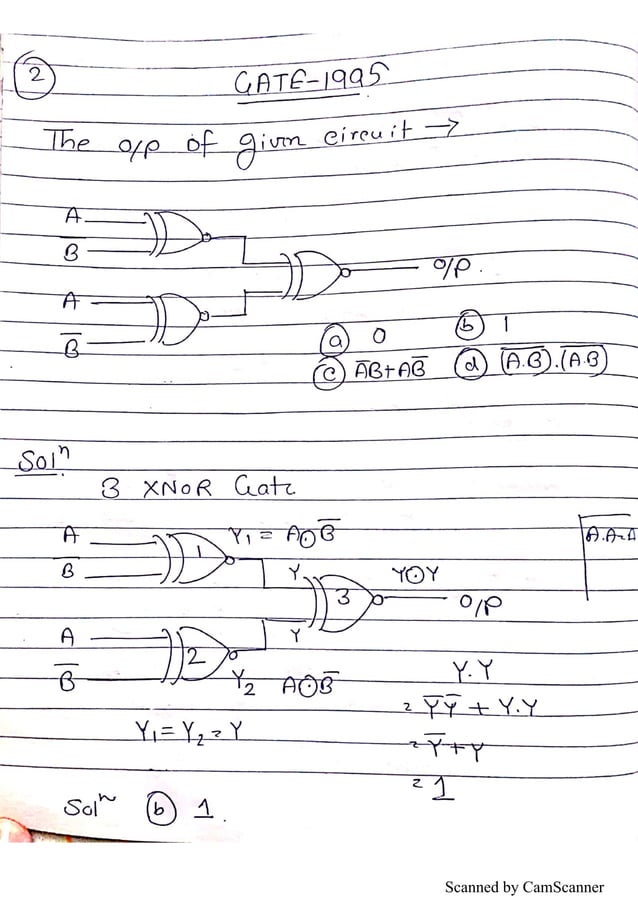 2
GATE-1995
The o/p of givin circuit →
A
B̅
A
B̅
O/P.
(a) 0 (b) 1
(c) A̅B+AB̅ (d) (A.B)̅.(A.B)̅
Solⁿ
3 XNOR Gate
A
B̅
1
Y₁ = A⊙B̅
Y
A.A=A
3
Y⊙Y
O/P
A
B̅
2
Y
Y₂ A⊙B̅
Y₁=Y₂=Y
Y.Y
= Y̅Y̅ + Y.Y
= Y̅+Y
= 1
Solⁿ (b) 1.
Scanned by CamScanner